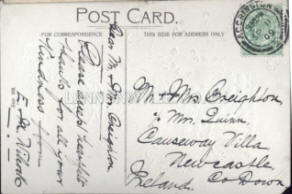 POST CARD.
FOR CORRESPONDENCE
THIS SIDE FOR ADDRESS ONLY
Dear Mr & Mrs. Creighton
Please accept heartfelt
thanks for all your
kindness from
Mr & Mrs Creighton
c/o Mrs. Quinn,
Causeway Villa
Newcastle
Co Down
Ireland.